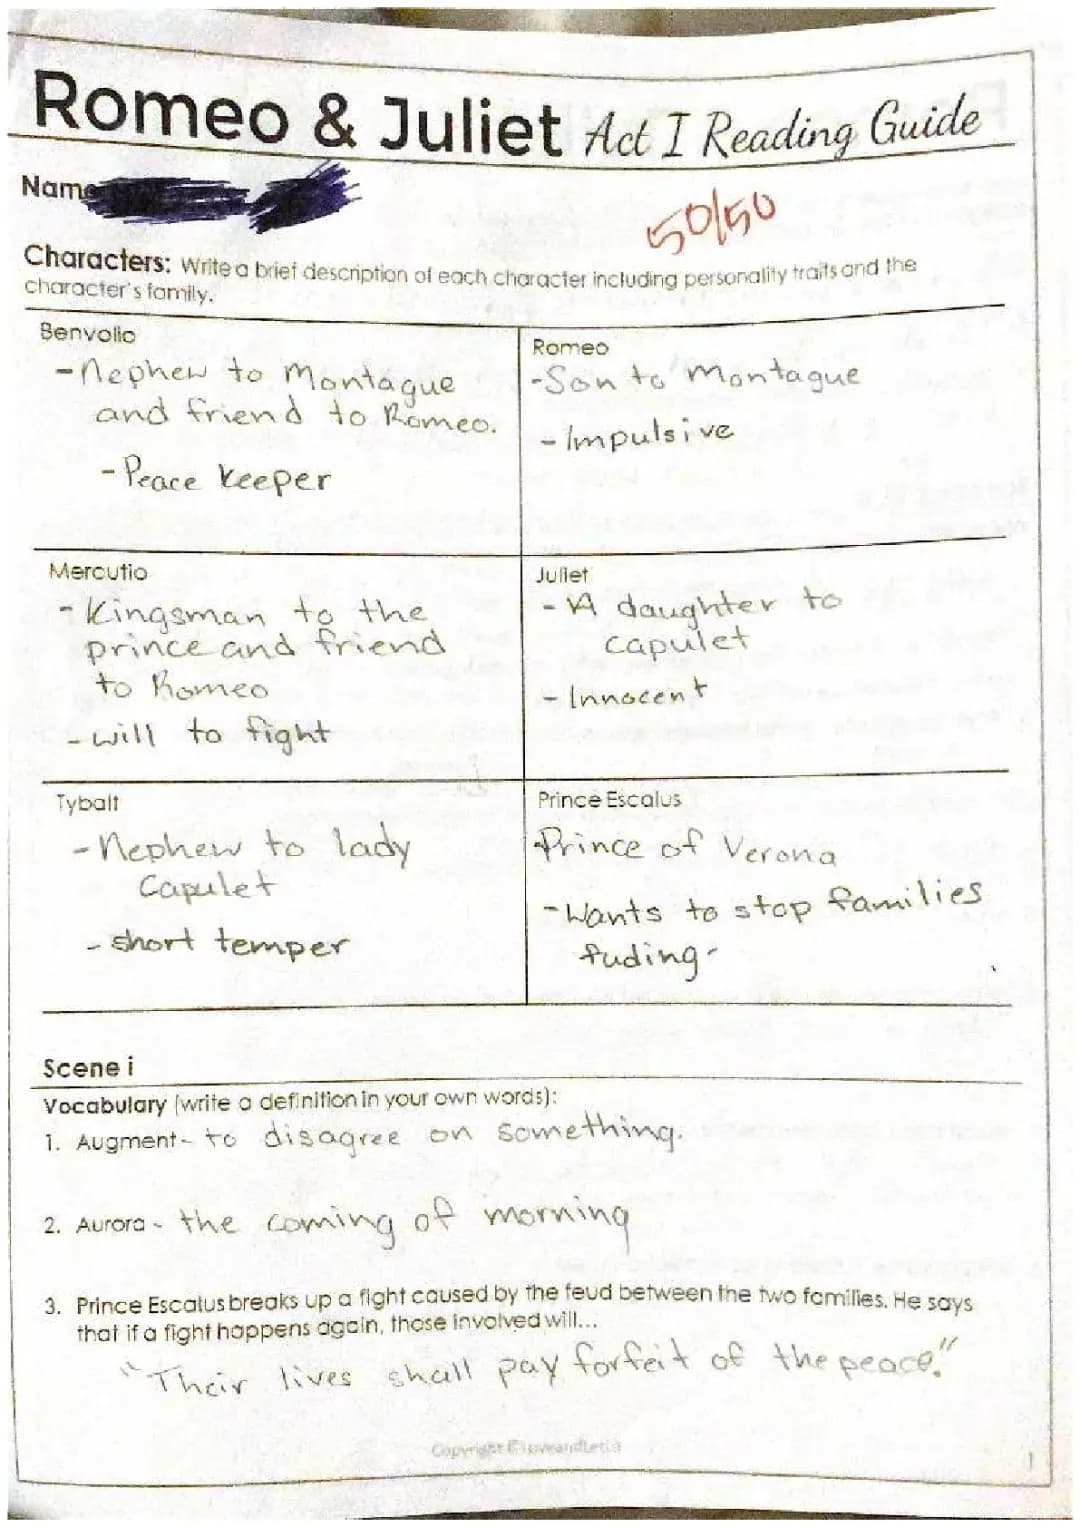 Romeo & Juliet Act I Reading Guide
Name
50/50
Characters: Write a brief description of each character including personality traits and the
character's family.
Benvolio
-Nephew to Montague
and friend to Romeo.
-Peace Keeper
Romeo
-Son to Montague
-Impulsive
Mercutio
-Kingsman to the
prince and friend
to Romeo
-will to fight
Juliet
-A daughter to
capulet
-Innocent
Tybalt
-Nephew to lady
Capulet
-short temper
Prince Escalus
-Prince of Verona
-Wants to stop families
fuding-
Scene i
Vocabulary (write a definition in your own words):
1. Augment- to disagree on something.
2. Aurora - the coming of morning
3. Prince Escalus breaks up a fight caused by the feud between the two families. He says
that if a fight happens again, those involved will...
"Their lives shall pay forfeit of the peace."
Copyright
1